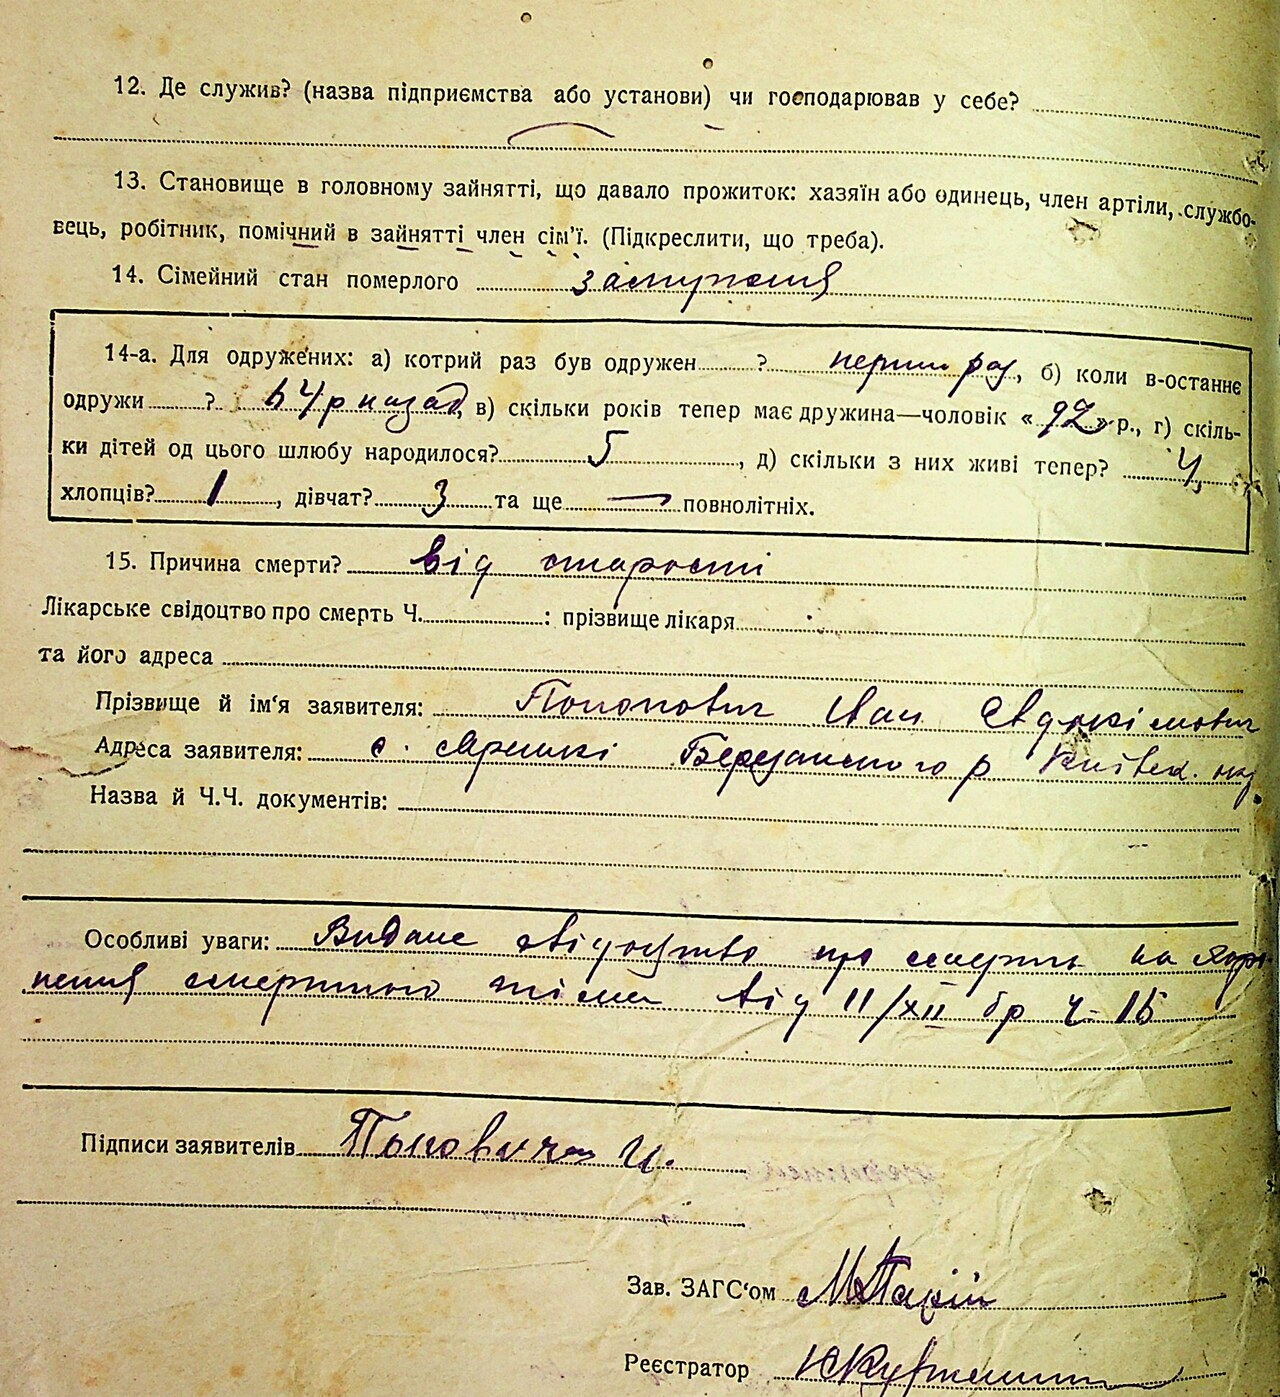 12. Де служив? (назва підприємства або установи) чи господарював у себе?
13. Становище в головному зайнятті, що давало прожиток: хазяїн або одинець, член артіли, службо-
вець, робітник, помічний в зайнятті член сім’ї. (Підкреслити, що треба).
14. Сімейний стан померлого замужняя
14-а. Для одружених: а) котрий раз був одружен ? перший раз, б) коли в-останнє
одружи ? 64 р назад, в) скільки років тепер має дружина—чоловік « 92 » р., г) скіль-
ки дітей од цього шлюбу народилося? 5, д) скільки з них живі тепер? 4,
хлопців? 1, дівчат? 3 та ще — повнолітніх.
15. Причина смерти? від старости
Лікарське свідоцтво про смерть Ч. : прізвище лікаря
та його адреса
Прізвище й ім'я заявителя: Попович Іван Євдокімович
Адреса заявителя: с. Ярешкі Березанского р Київск.
Назва й Ч.Ч. документів:
Особливі уваги: Видане свідоцтво про смерть на
смертного тіла від 11/XII бр Ч- 15
Підписи заявителів Попович И.
Зав. ЗАГС‘ом
Реєстратор